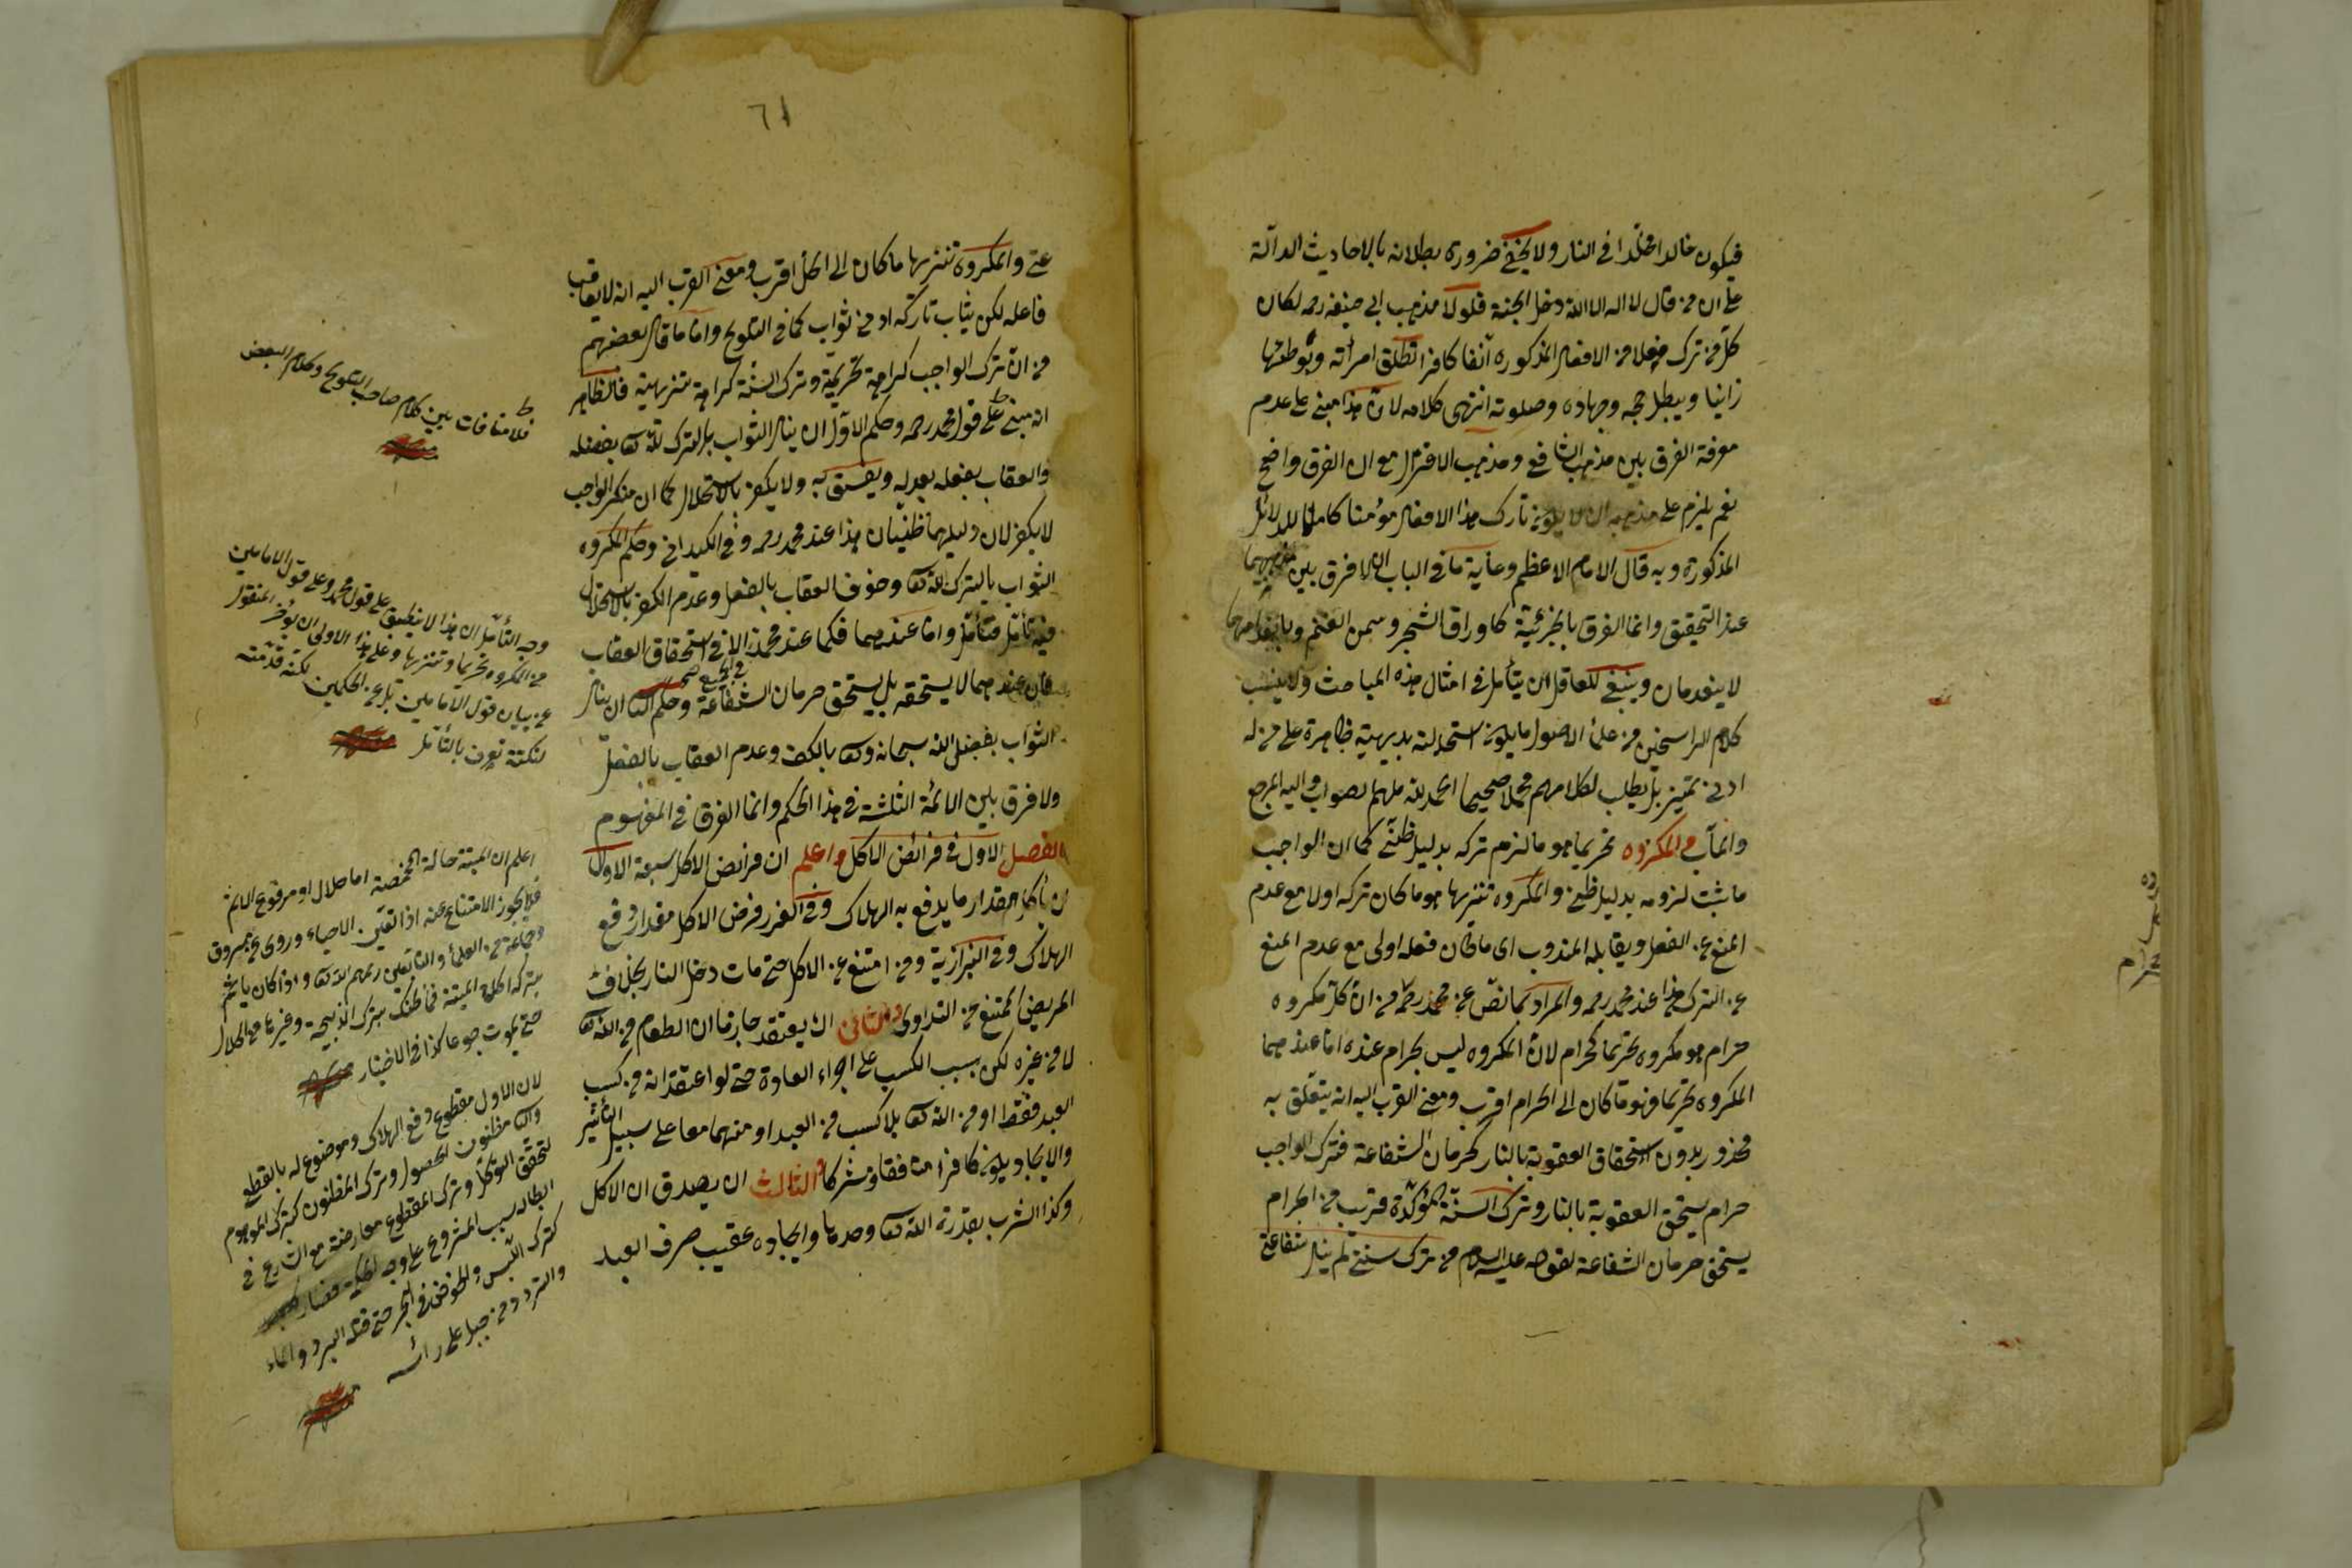 فيكون خالدا مخلدا في النار ولا يخفى ضرورة بطلانه بالاحاديث الدالة
على ان من قال لا اله الا الله دخل الجنة فلولا مذهب ابي حنيفه رحمه لكان
كل من ترك فعلا من الافعال المذكورة آنفا كافرا تطلق امرأته وبوطئها
زانيا ويبطل حجه وجهاده وصلوته انتهى كلامه لان هذا مبني على عدم
معرفة الفرق بين مذهب الشافعي ومذهب الاعتزال مع ان الفرق واضح
نعم يلزم على مذهبه ان لا يكون تارك هذا الافعال مؤمنا كاملا للدلائل
المذكورة وبه قال الامام الاعظم وغاية ما في الباب ان لا فرق بين مذهبيهما
عند التحقيق وانما الفرق بالجزئية كاوراق الشجر وسمن الغنم وبانعدامهما
لا ينعدمان وينبغي للعاقل ان يتأمل في امثال هذه المباحث ولا ينسب
كلام الراسخين من علماء الاصول ما يكون استحالته بديهية ظاهرة على من له
ادنى تمييز بل يطلب لكلامهم محملا صحيحا الحمد لله ملهم الصواب واليه المرجع
والمآب والمكروه تحريما هو ما لزم تركه بدليل ظني كما ان الواجب
ما ثبت لزومه بدليل ظني والمكروه تنزيها هو ما كان تركه اولى مع عدم
المنع عن الفعل ويقابله المندوب اى ما كان فعله اولى مع عدم المنع
عن الترك هذا عند محمد رحمه والمراد بما نص عن محمد رحمه من ان كل مكروه
حرام هو مكروه تحريما كحرام لان المكروه ليس بحرام عنده اما عندهما
المكروه تحريما فهو ما كان الى الحرام اقرب ومعنى القرب اليه انه يتعلق به
محذور بدون استحقاق العقوبة بالنار كحرمان الشفاعة فترك الواجب
حرام يستحق العقوبة بالنار وترك السنة المؤكدة قريب من الحرام
يستحق حرمان الشفاعة لقوله عليه السلام من ترك سنتي لم ينل شفاعتي
٦١
عني والمكروه تنزيها ما كان الى الحل اقرب ومعنى القرب اليه انه لا يعاقب
فاعله لكن يثاب تاركه ادنى ثواب كما في التلويح واما ما قال بعضهم
من ان ترك الواجب كراهة تحريمية وترك السنة كراهة تنزيهية فالظاهر
انه مبني على قول محمد رحمه وحكم الاول ان ينال الثواب بالترك لله تعالى بفضله
والعقاب بفعله بعدله ويفسق به ولا يكفر بالاستحلال كما ان منكر الواجب
لا يكفر لان دليلهما ظنيان هذا عند محمد رحمه وفي الكيداني وحكم المكروه
الثواب بالترك لله تعالى وخوف العقاب بالفعل وعدم الكفر بالاستحلال
فيه تأمل فتأمل واما عندهما فكما عند محمد الا في استحقاق العقاب
فان عندهما لا يستحقه بل يستحق حرمان الشفاعة وحكم الثاني ان ينال
الثواب بفضل الله سبحانه وتعالى بالكف وعدم العقاب بالفعل
ولا فرق بين الائمة الثلثة في هذا الحكم وانما الفرق في المفهوم
الفصل الاول في فرائض الاكل واعلم ان فرائض الاكل سبعة الاول
ان يأكل مقدار ما يدفع به الهلاك وفي الغرر فرض الاكل مقدار دفع
الهلاك وفي البزازية ومن امتنع عن الاكل حتى مات دخل النار بخلاف
المريض الممتنع من التداوى والثاني ان يعتقد جازما ان الطعام من الله تعالى
لا من غيره لكن بسبب الكسب على اجراء العادة حتى لو اعتقد انه من كسب
العبد فقط او من الله تعالى بلا كسب من العبد او منهما معا على سبيل التأثير
والايجاد يكون كافرا منافقا ومشركا الثالث ان يصدق ان الاكل
وكذا الشرب بقدرة الله تعالى وحدها وايجاده عقيب صرف العبد
فلا منافات بين كلام صاحب التلويح وكلام البعض
منه
وجه التأمل ان هذا لا ينطبق على قول محمد وعلى قول الامامين
من المكروه تحريما وتنزيها وعلى هذا الاولى ان يؤخر المنقول
عن بيان قول الامامين بل عن الحكمين لكنه قدمته
لنكتة تعرف بالتأمل منه
اعلم ان الميتة حالة المخمصة اما حلال او مرفوع الاثم
فلا يجوز الامتناع عنه اذا تعين الاحياء وروى عن مسروق
وجماعة من العلماء والتابعين رحمهم الله تعالى واذا كان يأثم
بتركه اكل الميتة فما ظنك بترك الذبيحة وغيرها من الحلال
حتى يموت جوعا كذا في الاختيار منه
لان الاول مقطوع دفع الهلاك وموضوع له بالقطع
والثاني مظنون الحصول وترك المظنون كترك الموهوم
لتحقق التوكل وترك المقطوع معارضة مع الشارع في
ابطال سبب المشروع على وجه الحكمة فصار
كترك اللبس والخوض في البحر حتى قتله البرد والماء
والتردد من جبل على رأسه
منه